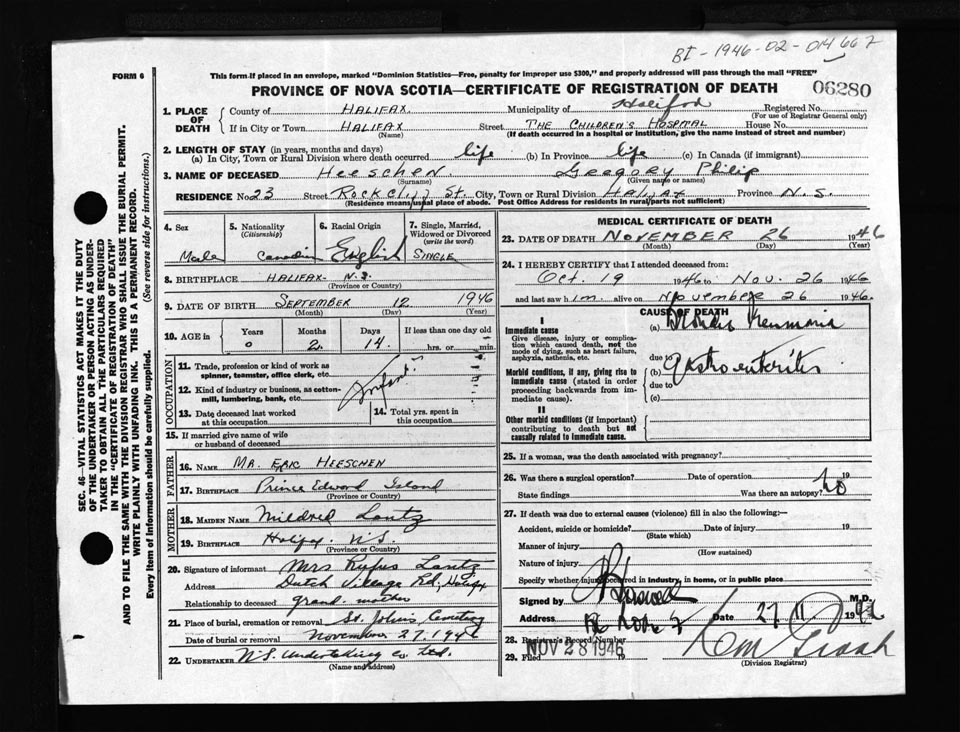 BI-1946-02-014667
FORM 6
This form if placed in an envelope, marked "Dominion Statistics—Free, penalty for improper use $300," and properly addressed will pass through the mail "FREE"
PROVINCE OF NOVA SCOTIA—CERTIFICATE OF REGISTRATION OF DEATH
06280
1. PLACE OF DEATH
County of HALIFAX Municipality of Halifax Registered No.
(For use of Registrar General only)
If in City or Town HALIFAX Street THE CHILDREN'S HOSPITAL House No.
(Name) (If death occurred in a hospital or institution, give the name instead of street and number)
2. LENGTH OF STAY (in years, months and days)
(a) In City, Town or Rural Division where death occurred life (b) In Province life (c) In Canada (if immigrant)
3. NAME OF DECEASED Heeschen. Gregory Philip
(Surname) (Given name or names)
RESIDENCE No 23 Street Rockcliff St. City, Town or Rural Division Halifax Province N.S.
(Residence means usual place of abode. Post Office Address for residents in rural parts not sufficient)
4. Sex
Male
5. Nationality (Citizenship)
Canadian
6. Racial Origin
English
7. Single, Married, Widowed or Divorced (write the word)
SINGLE
8. BIRTHPLACE HALIFAX- N.S.
(Province or Country)
9. DATE OF BIRTH SEPTEMBER 12 1946
(Month) (Day) (Year)
10. AGE in Years Months Days If less than one day old
0 2 14. hrs. or min.
OCCUPATION
11. Trade, profession or kind of work as spinner, teamster, office clerk, etc.
Infant
12. Kind of industry or business, as cotton-mill, lumbering, bank, etc.
13. Date deceased last worked at this occupation
14. Total yrs. spent in this occupation
15. If married give name of wife or husband of deceased
FATHER
16. NAME MR. ERIC HEESCHEN
17. BIRTHPLACE Prince Edward Island
(Province or Country)
MOTHER
18. MAIDEN NAME Mildred Lantz
19. BIRTHPLACE Halifax N.S.
(Province or Country)
20. Signature of informant Mrs Rufus Lantz
Address Dutch Village Rd, Halifax
Relationship to deceased grand-mother
21. Place of burial, cremation or removal St. John's Cemetery
Date of burial or removal November 27. 1946
22. UNDERTAKER N.S. Undertaking Co Ltd.
(Name and address)
MEDICAL CERTIFICATE OF DEATH
23. DATE OF DEATH NOVEMBER 26 1946
(Month) (Day) (Year)
24. I HEREBY CERTIFY that I attended deceased from:
Oct. 19 1946 to Nov. 26 1946
and last saw him alive on November 26 1946.
CAUSE OF DEATH
I
Immediate cause
Give disease, injury or complication which caused death, not the mode of dying, such as heart failure, asphyxia, asthenia, etc.
(a) Broncho Pneumonia
due to
Morbid conditions, if any, giving rise to immediate cause (stated in order proceeding backwards from immediate cause).
(b) gastro enteritis
due to
(c)
II
Other morbid conditions (if important) contributing to death but not causally related to immediate cause.
25. If a woman, was the death associated with pregnancy?
26. Was there a surgical operation? Date of operation 19
State findings Was there an autopsy? no
27. If death was due to external causes (violence) fill in also the following:—
Accident, suicide or homicide? Date of injury 19
(State which)
Manner of injury
(How sustained)
Nature of injury
Specify whether injury occurred in industry, in home, or in public place
Signed by M.D.
Address Date 27 11 1946
28. Registrar's Record Number
29. Filed NOV 28 1946 19
(Division Registrar)
SEC. 46—VITAL STATISTICS ACT MAKES IT THE DUTY
OF THE UNDERTAKER OR PERSON ACTING AS UNDER-
TAKER TO OBTAIN ALL THE PARTICULARS REQUIRED
IN THE "CERTIFICATE OF REGISTRATION OF DEATH"
AND TO FILE THE SAME WITH THE DIVISION REGISTRAR WHO SHALL ISSUE THE BURIAL PERMIT.
WRITE PLAINLY WITH UNFADING INK. THIS IS A PERMANENT RECORD.
Every item of Information should be carefully supplied. (See reverse side for instructions.)